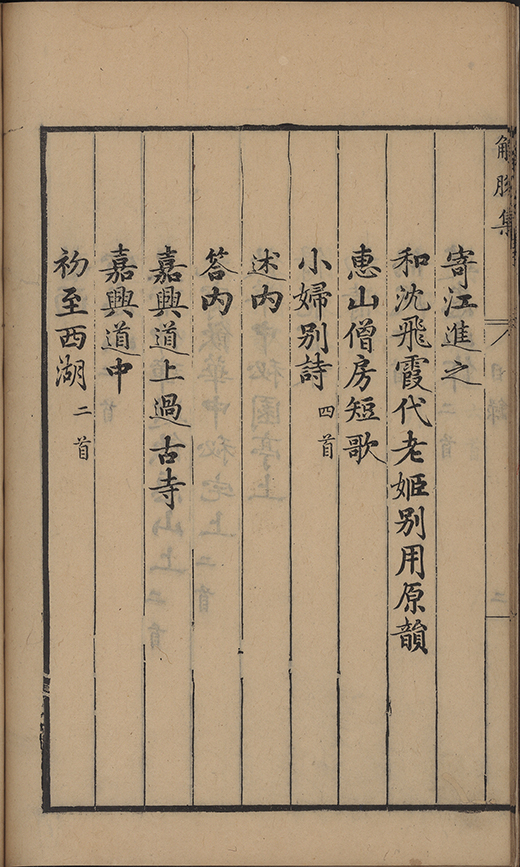 解脫集
寄江進之
和沈飛霞代老姬別用原韻
惠山僧房短歌
小婦別詩 四首
述内
答内
嘉興道上過古寺
嘉興道中
初至西湖 二首